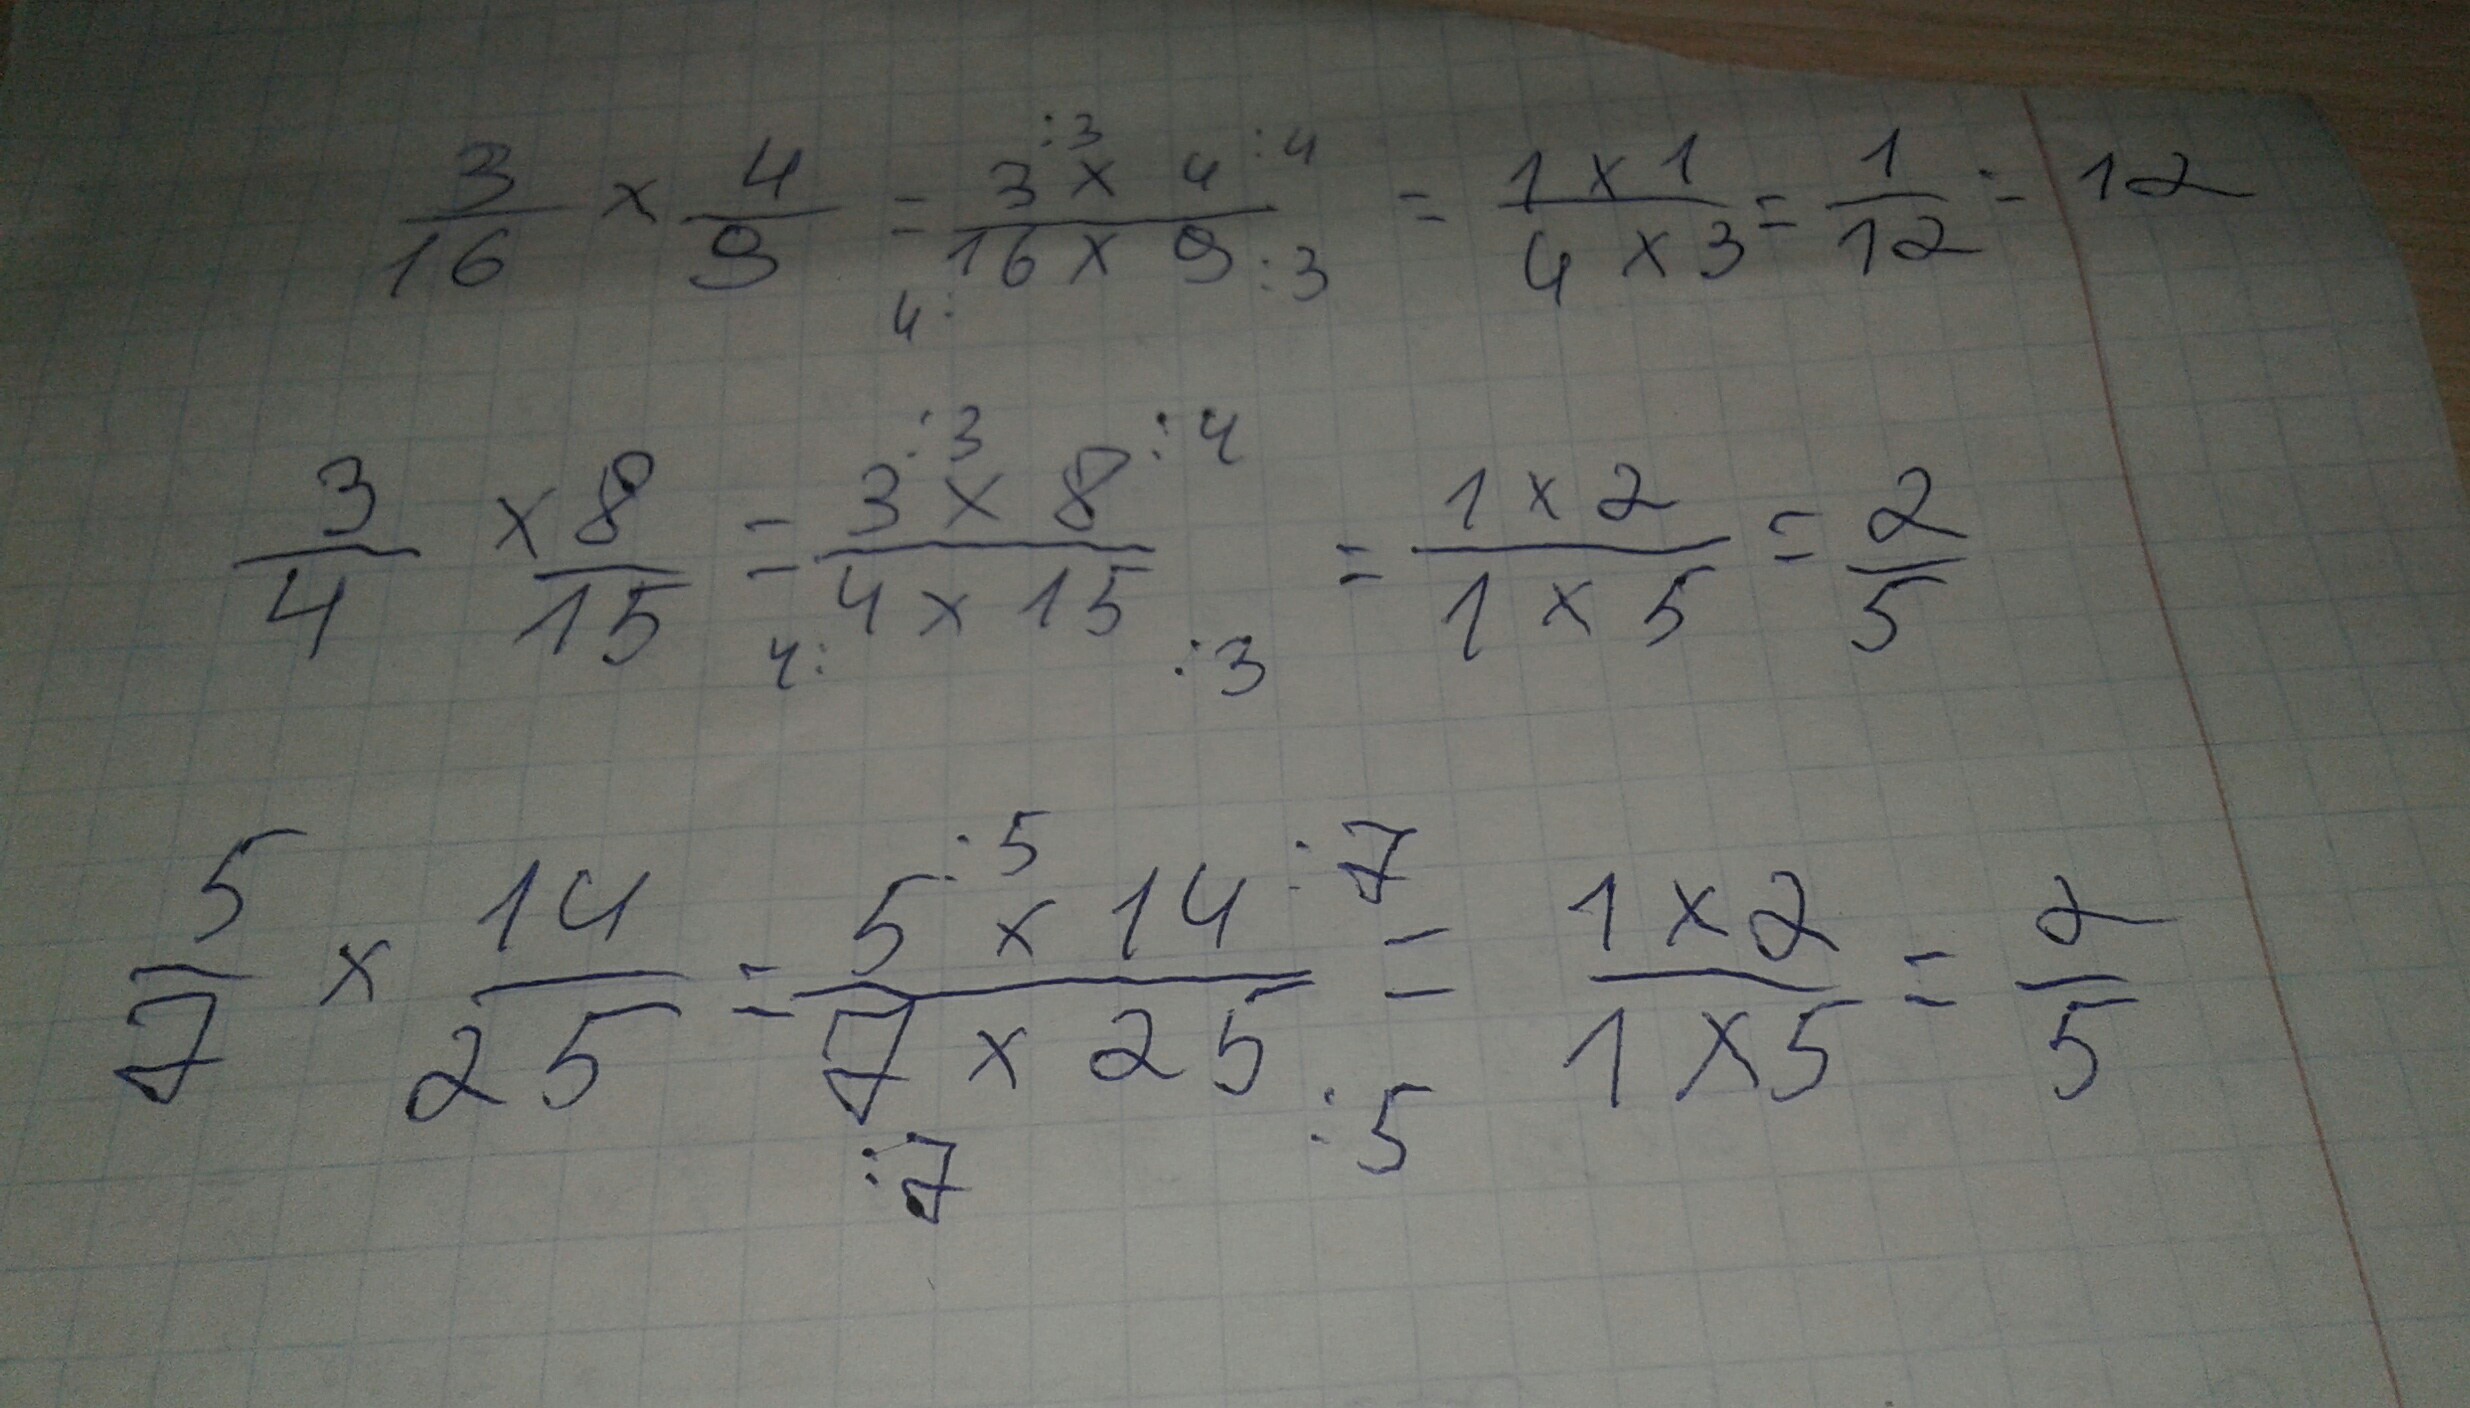 3/16 x 4/9 = 3:3 x 4:4 / 4:16 x 9:3 = 1 x 1 / 4 x 3 = 1/12 = 12
3/4 x 8/15 = 3:3 x 8:4 / 4:4 x 15:3 = 1 x 2 / 1 x 5 = 2/5
5/7 x 14/25 = 5:5 x 14:7 / 7:7 x 25:5 = 1 x 2 / 1 x 5 = 2/5